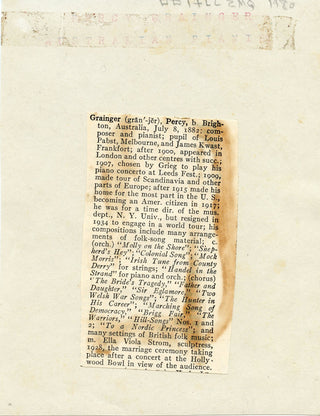 PERCY GRAINGER
AUSTRALIAN PIANI
Grainger (grān'-jĕr), Percy, b. Brigh-
ton, Australia, July 8, 1882: com-
poser and pianist; pupil of Louis
Pabst, Melbourne, and James Kwast,
Frankfort; after 1900, appeared in
London and other centres with succ.;
1907, chosen by Grieg to play his
piano concerto at Leeds Fest.; 1909,
made tour of Scandinavia and other
parts of Europe; after 1915 made his
home for the most part in the U. S.,
becoming an Amer. citizen in 1917;
he was for a time dir. of the mus.
dept., N. Y. Univ., but resigned in
1934 to engage in a world tour; his
compositions include many arrange-
ments of folk-song material; c.
(orch.) "Molly on the Shore"; "Shep-
herd's Hey"; "Colonial Song" "Mock
Morris"; "Irish Tune from County
Derry" for strings; "Handel in the
Strand" for piano and orch.; (chorus)
"The Bride's Tragedy," "Father and
Daughter," "Sir Eglamore," "Two
Welsh War Songs"; "The Hunter in
His Career"; "Marching Song of
Democracy," "Brigg Fair," "The
Warriors," "Hill-Songs" Nos. 1 and
2; "To a Nordic Princess"; and
many settings of British folk music;
m. Ella Viola Strom, sculptress,
1928, the marriage ceremony taking
place after a concert at the Holly-
wood Bowl in view of the audience.